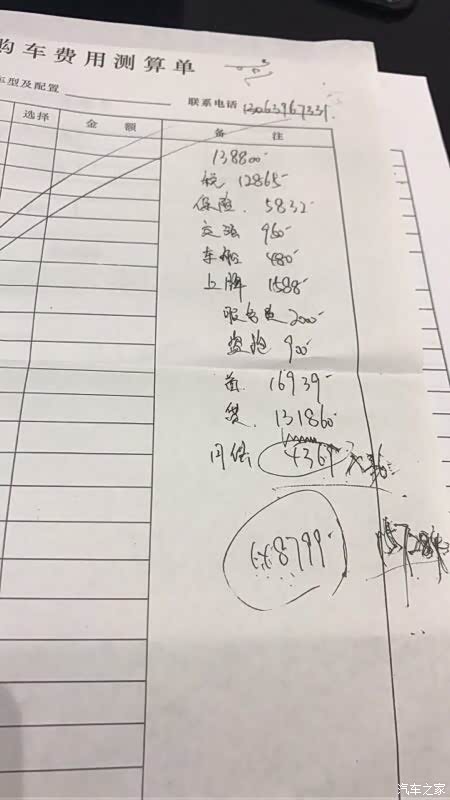 购车费用测算单
车型及配置 联系电话 13063967331
选择 金额 备注
138800
税 12865
保险 5832
交强 950
车船 480
上牌 1588
服务费 2000
盗抢 900
首 16939
贷 131860
月供 4369
8799
汽车之家